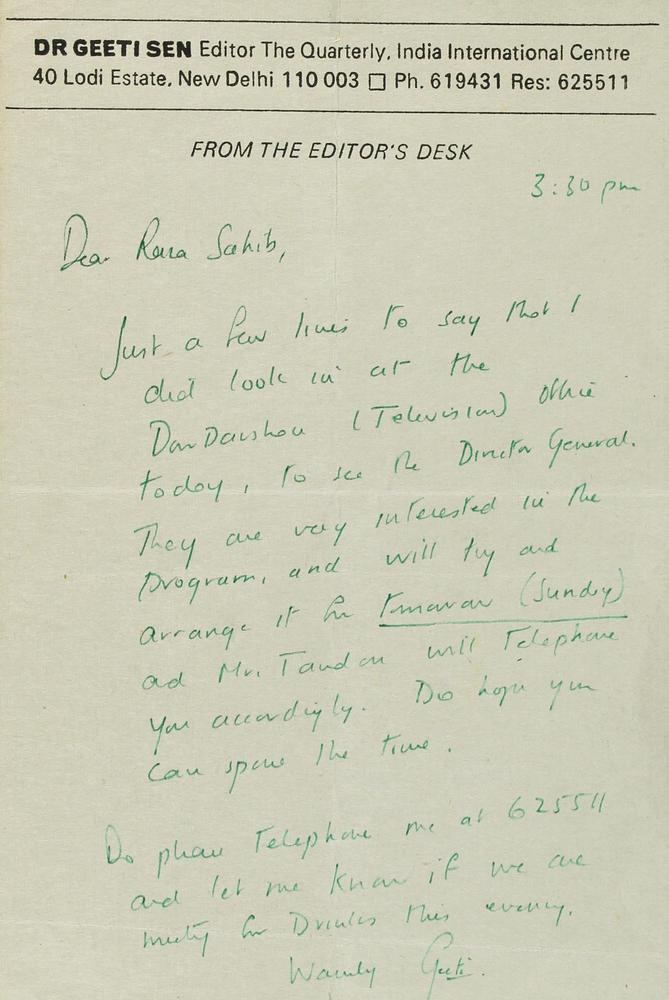 DR GEETI SEN Editor The Quarterly, India International Centre
40 Lodi Estate, New Delhi 110 003 □ Ph. 619431 Res: 625511
FROM THE EDITOR'S DESK
3:30 pm
Dear Raza Sahib,
Just a few lines to say that I
did look in at the
DoorDarshan (Television) office
today, to see the Director General.
They are very interested in the
program, and will try and
arrange it for tomorrow (Sunday)
and Mr. Tandon will telephone
you accordingly. Do hope you
can spare the time.
Do please telephone me at 625511
and let me know if we are
meeting for Drinks this evening.
Warmly Geeti.